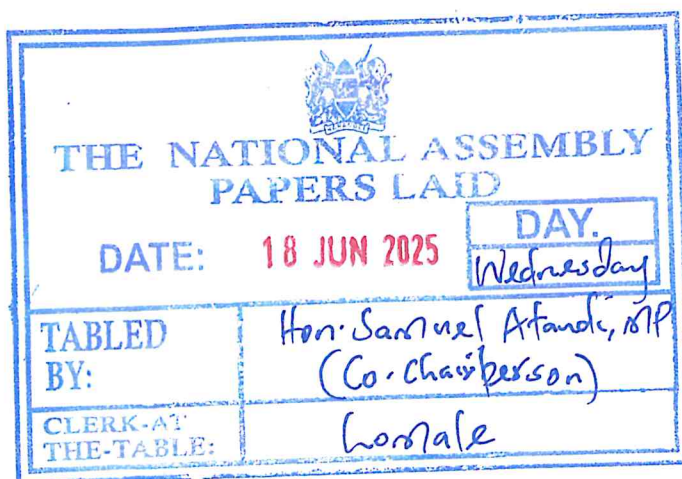 THE NATIONAL ASSEMBLY
PAPERS LAID
DATE: 18 JUN 2025
DAY.
Wednesday
TABLED
BY:
Hon. Samuel Atandi, MP
(Co-Chairperson)
CLERK-AT
THE-TABLE: